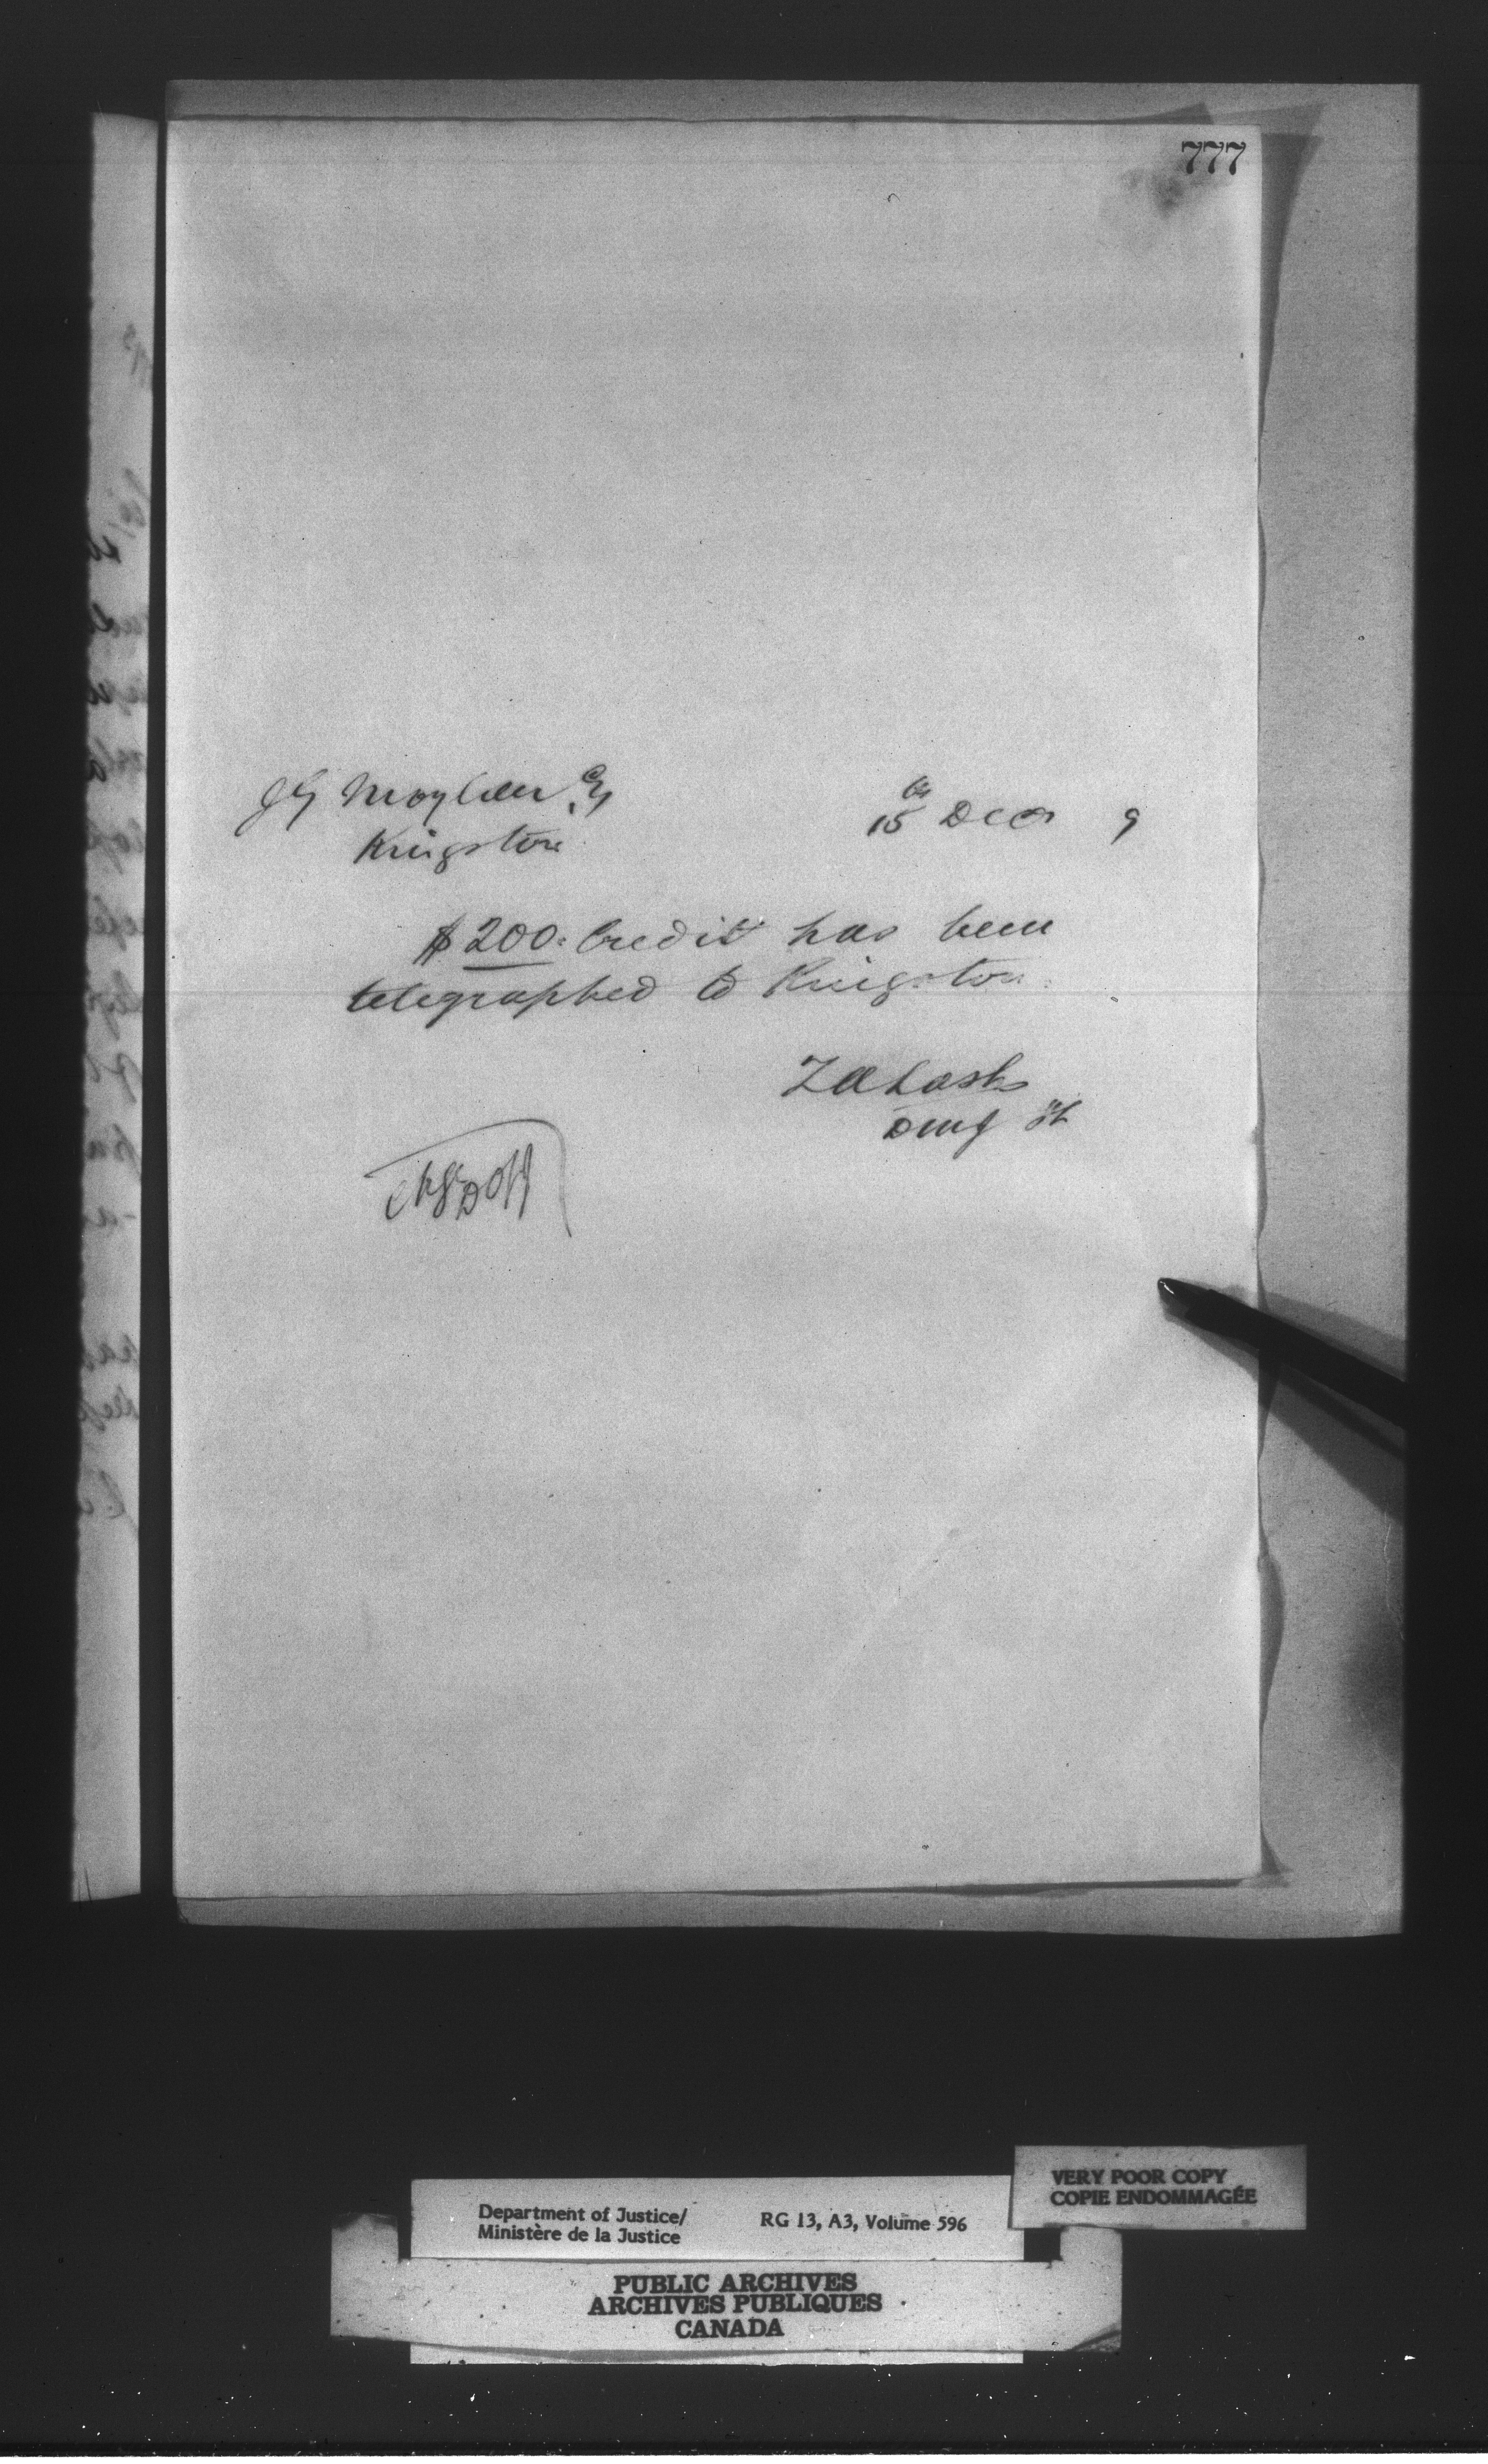 777
J G Moylan Esq
15th Decr 9
Kingston
$200. Credit has been
telegraphed to Kingston.
Z A Lash
D M J
Department of Justice/
Ministère de la Justice
RG 13, A3, Volume 596
VERY POOR COPY
COPIE ENDOMMAGÉE
PUBLIC ARCHIVES
ARCHIVES PUBLIQUES
CANADA